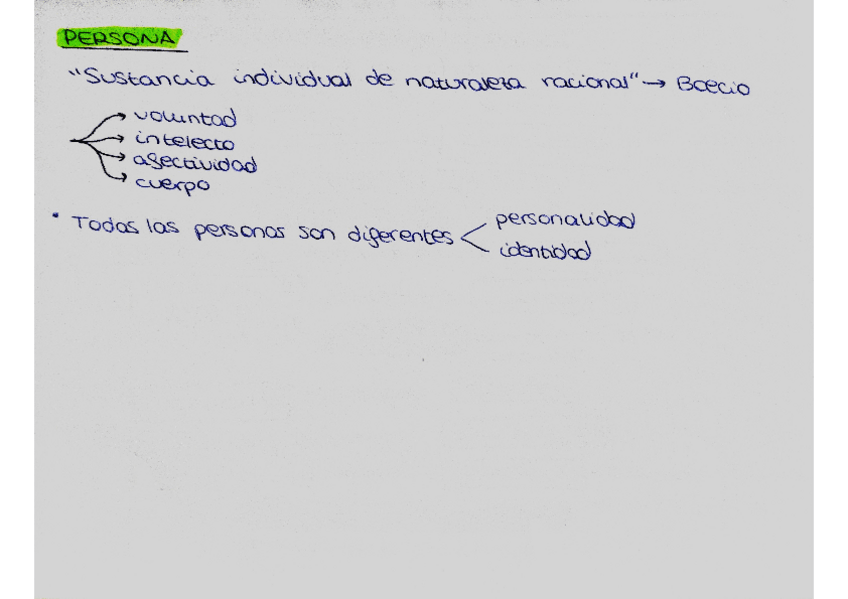 PERSONA
"Sustancia individual de naturaleza racional" → Boecio
→ voluntad
→ intelecto
→ afectividad
→ cuerpo
• Todas las personas son diferentes < personalidad
identidad